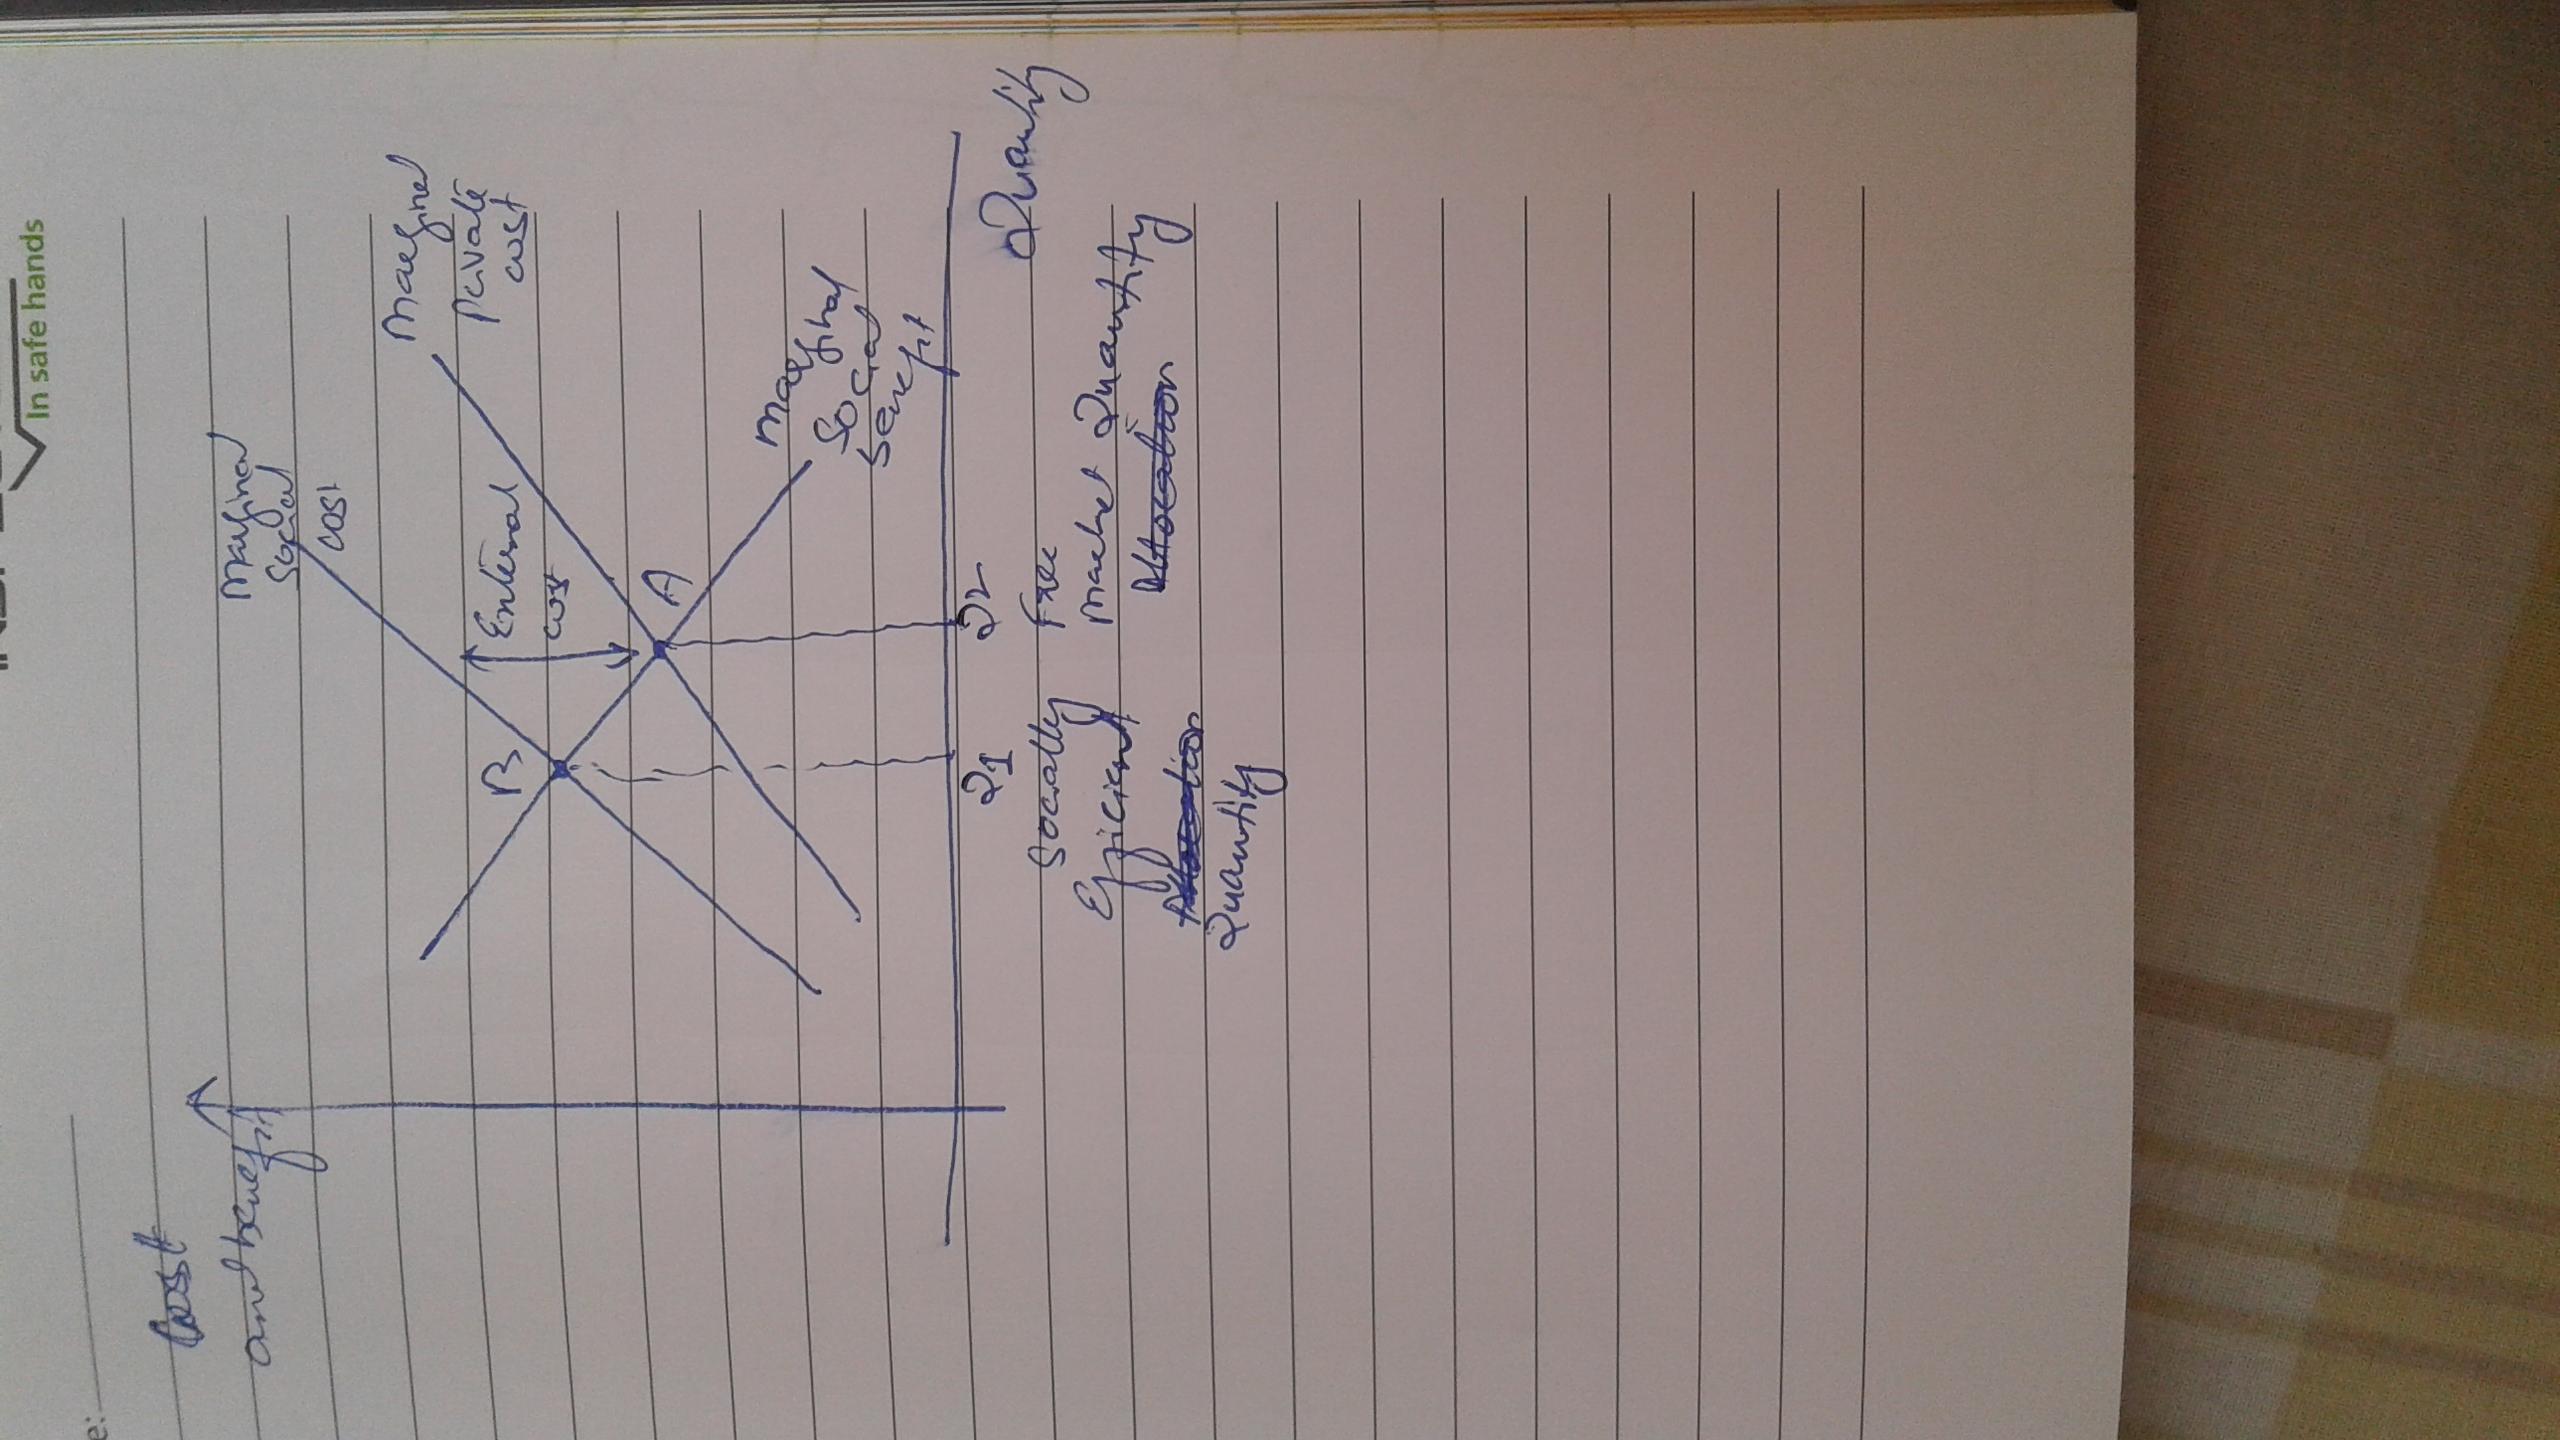 In safe hands
e:
Cost
and benefit
Marginal
Social
cost
Marginal
Private
cost
External
cost
B
A
Marginal
Social
benefit
Q1
Q2
Quantity
Socially
Efficient
Allocation
Quantity
Free
Market Quantity
Allocation